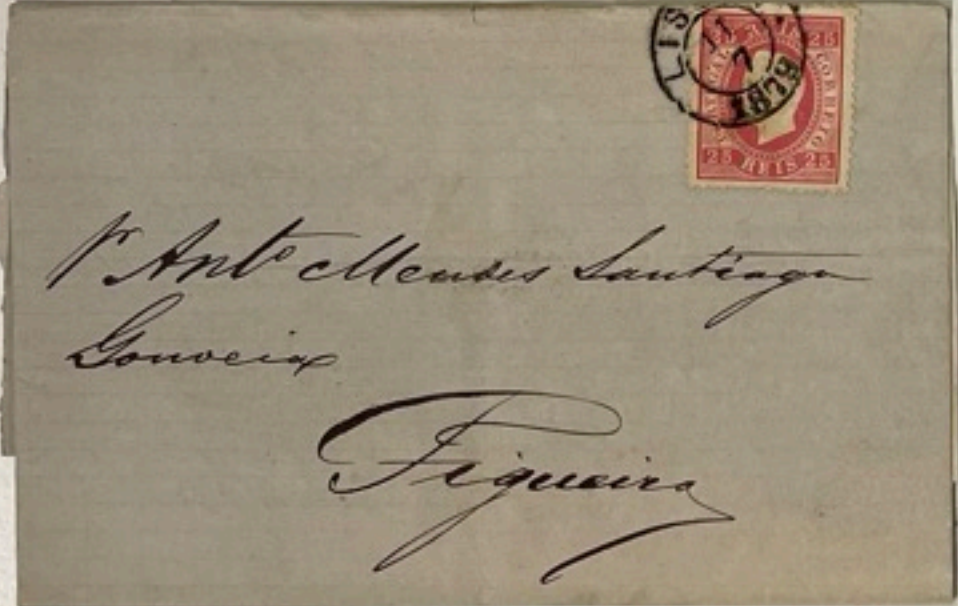 LIS
11
7
25 25
CORREIO
25 REIS 25
Sr Antº Mendes Santiago
Gouveia
Figueira